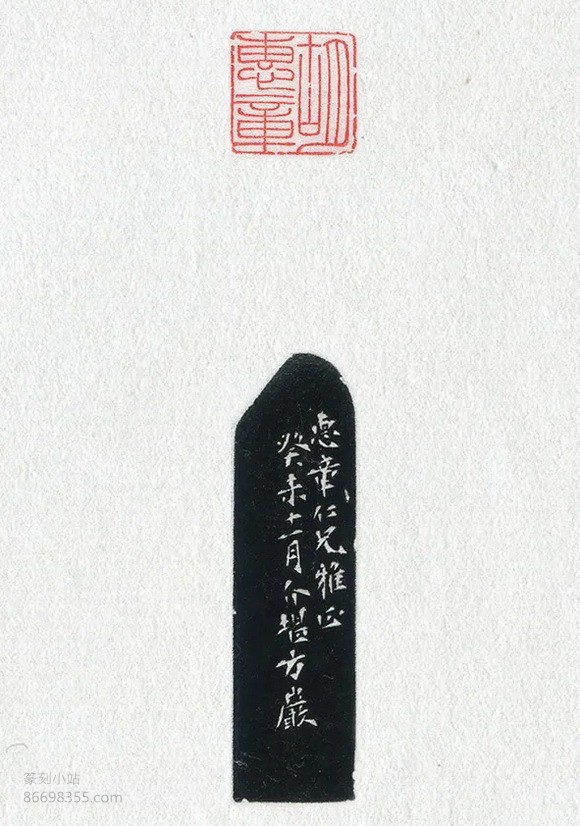 胡
惠章
惠章仁兄雅正
癸未十一月介堪方巖
篆刻小站
86698355.com